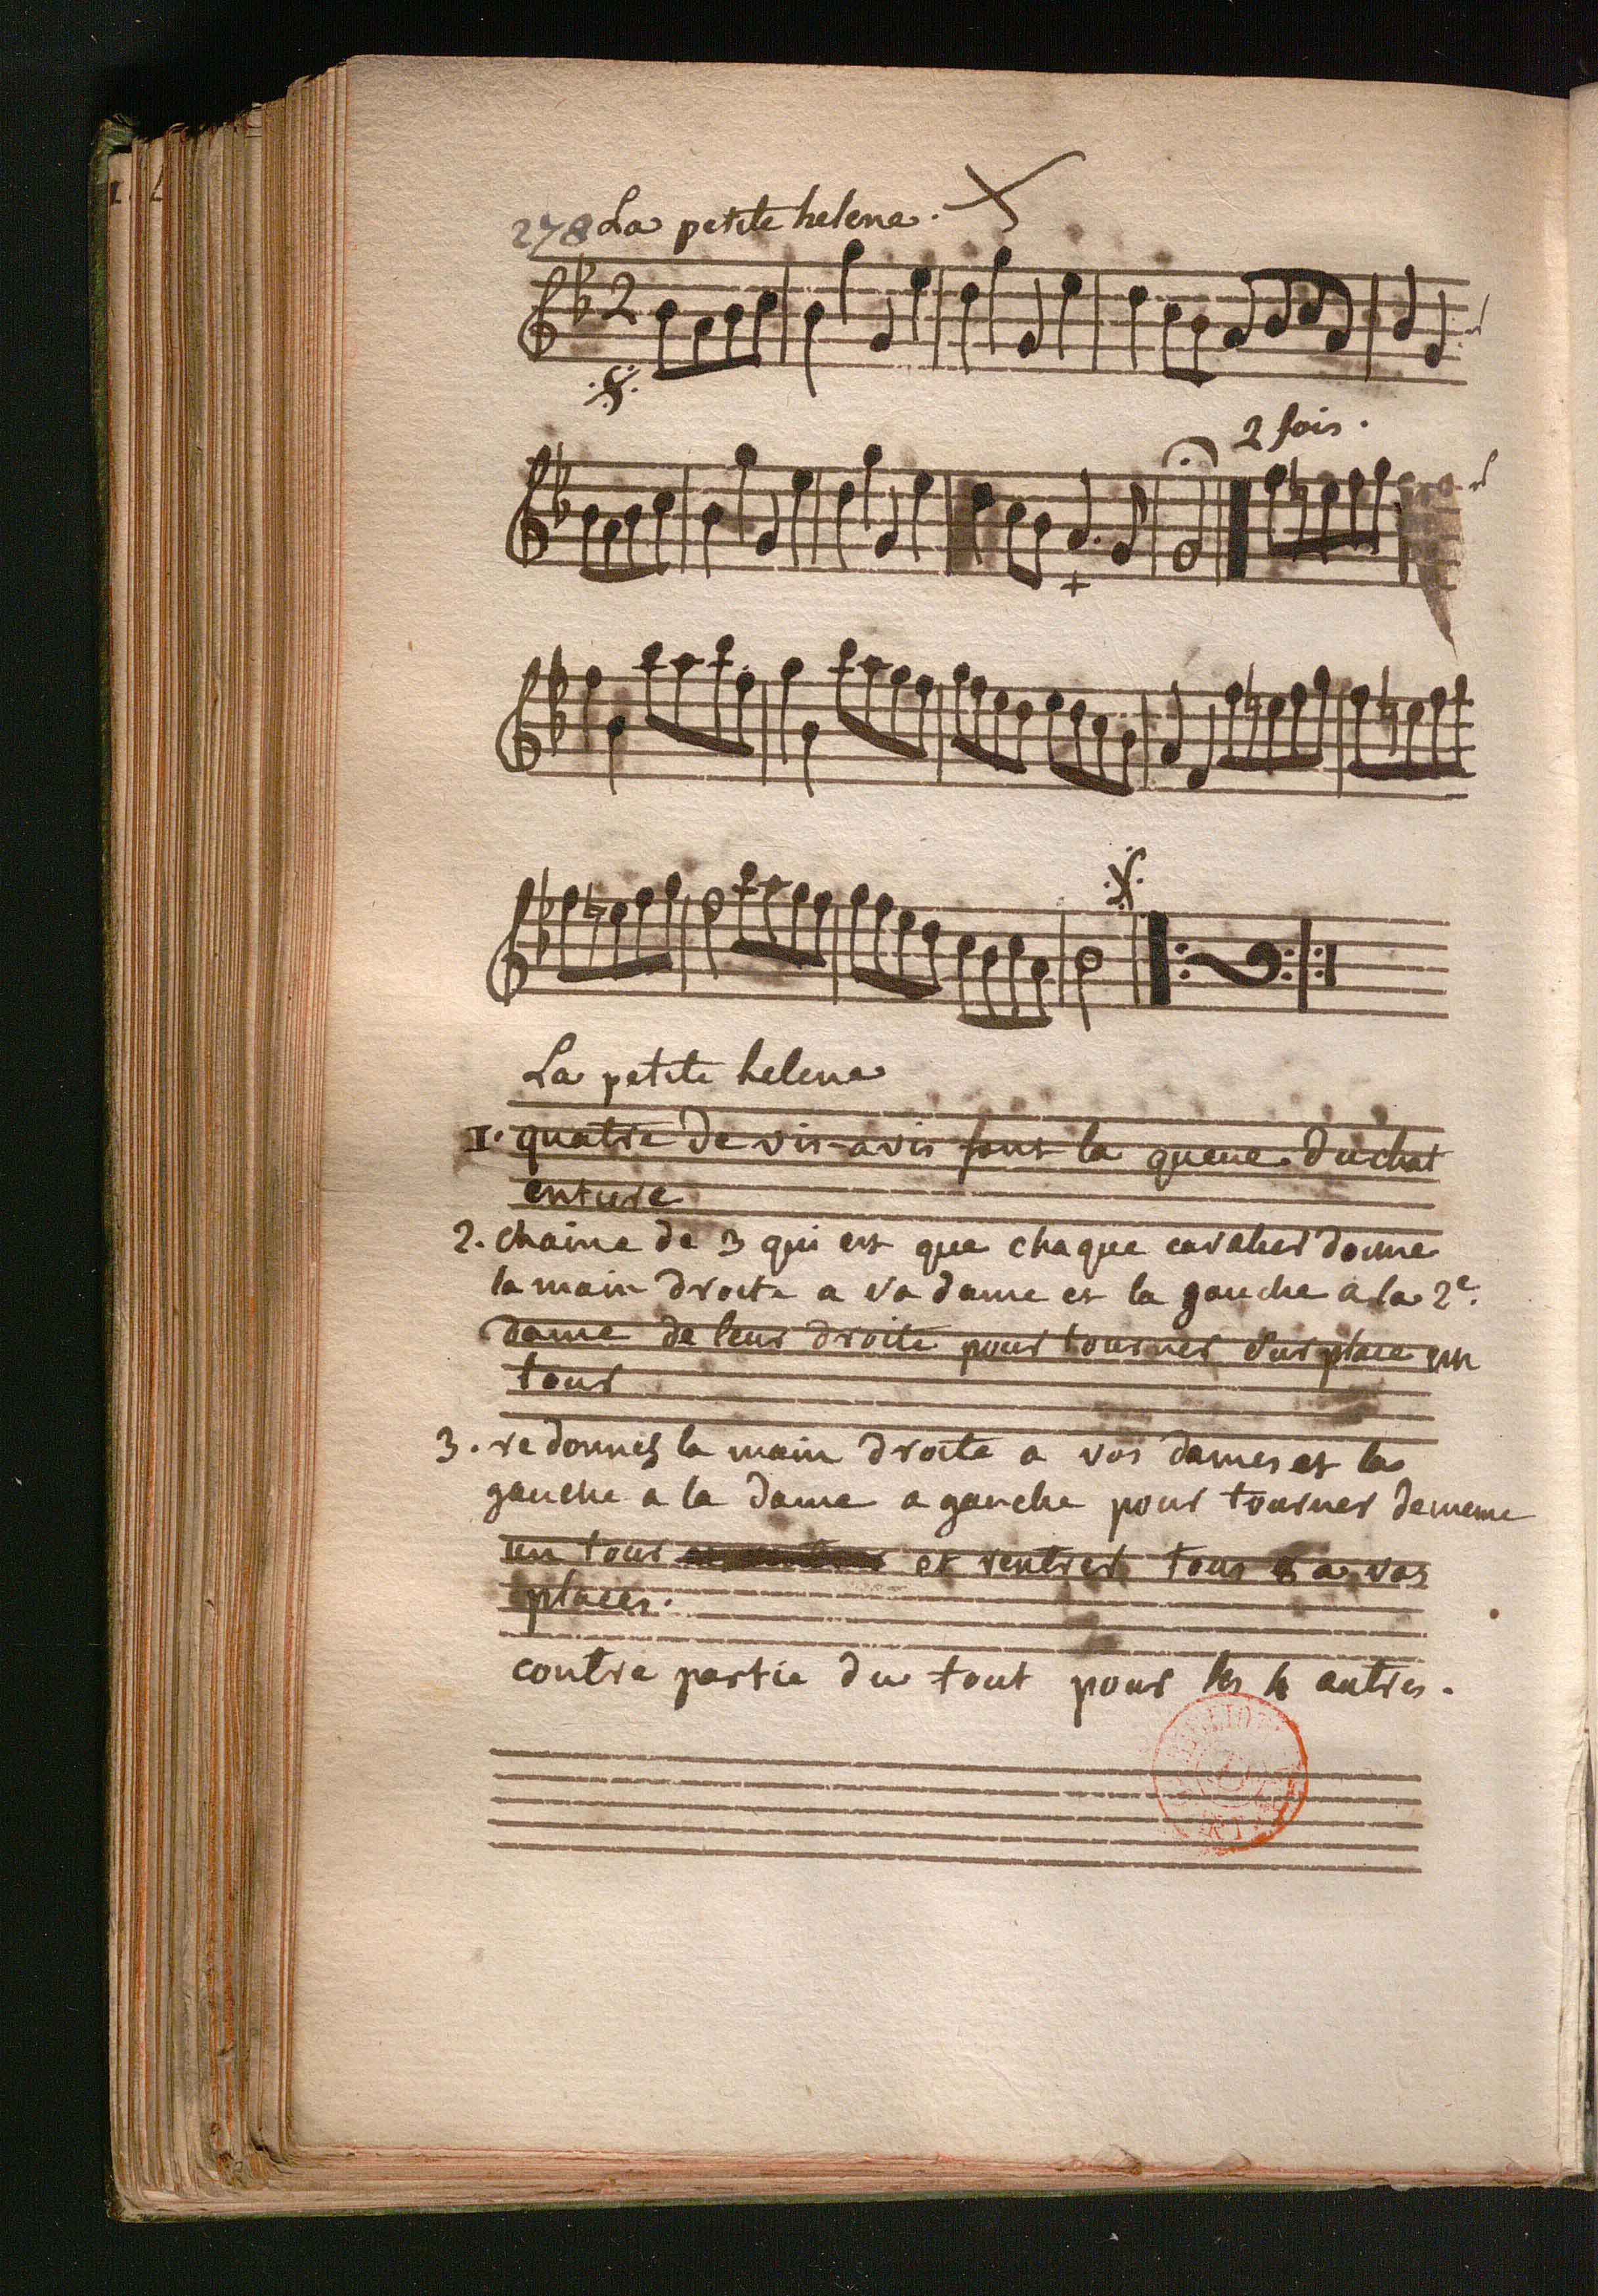 278 La petite helene.
2
2 fois.
La petite helene
1. quatre de vis-avis font la queue du chat
entiere
2. chaine de 3 qui est que chaque cavalier donne
la main droite a sa dame et la gauche a la 2e.
dame de leur droite pour tourner sur place un
tour
3. redonnes la main droite a vos dames et la
gauche a la dame a gauche pour tourner dememe
un tour et rentrer tous 8 a vos
places.
contre partie du tout pour les 4 autres.